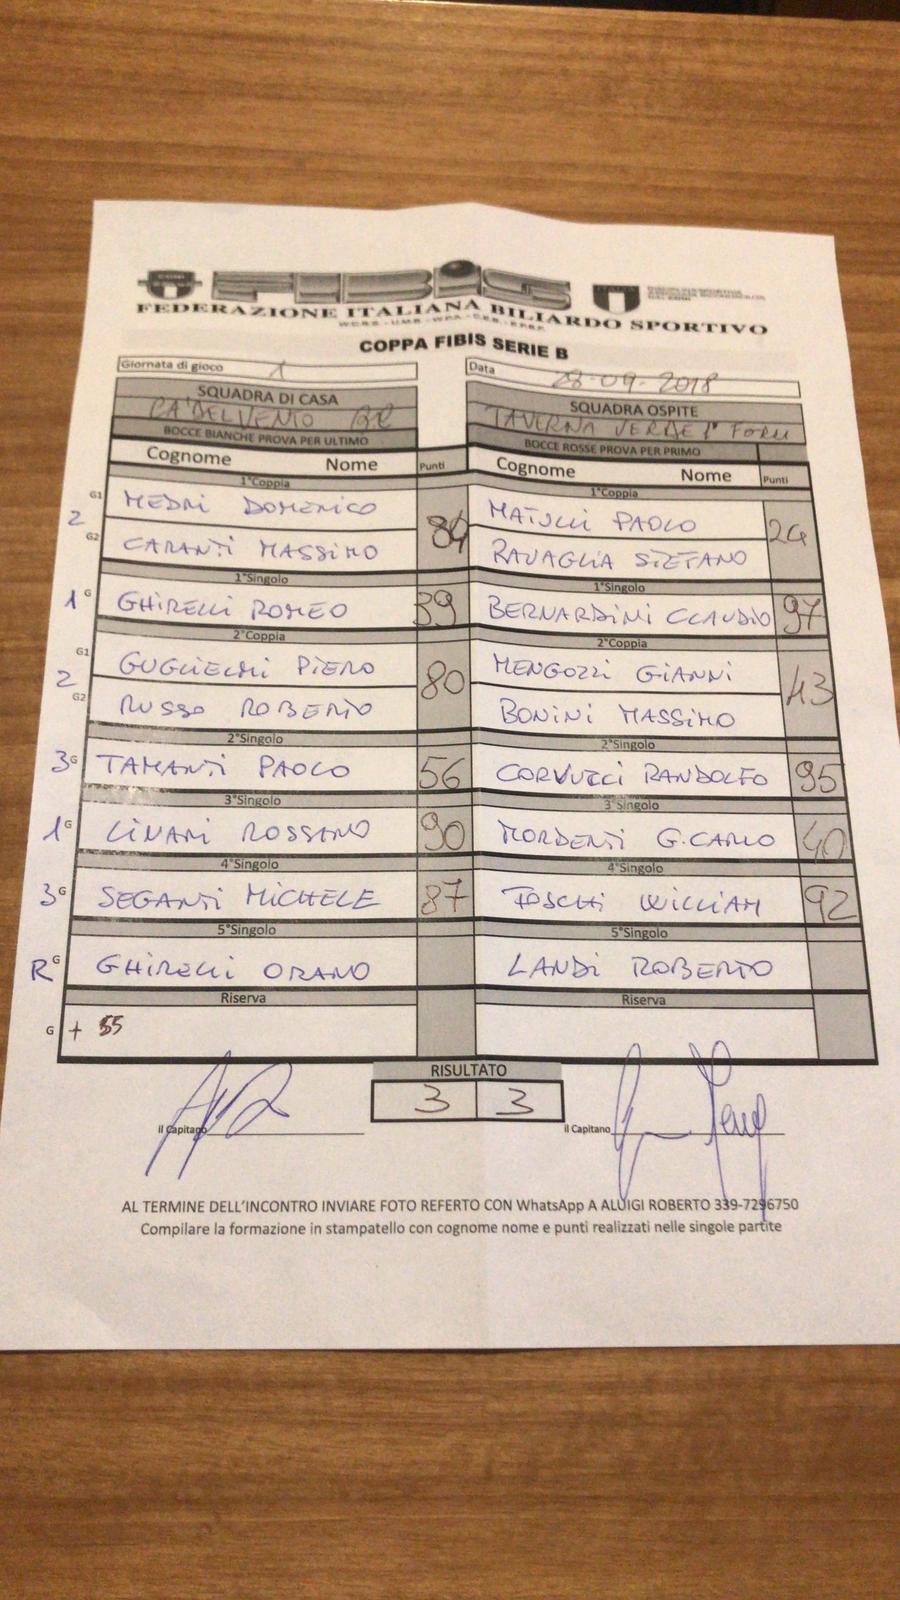 FIBIS
FEDERAZIONE ITALIANA BILIARDO SPORTIVO
COPPA FIBIS SERIE B
Giornata di gioco 1
Data 28-09-2018
SQUADRA DI CASA
CA' DEL VENTO
BOCCE BIANCHE PROVA PER ULTIMO
SQUADRA OSPITE
TAVERNA VERDE 1° FORLI
BOCCE ROSSE PROVA PER PRIMO
Cognome Nome Punti Cognome Nome Punti
1°Coppia 1°Coppia
G1 MEDRI DOMENICO MATULLI PAOLO
2 84 24
G2 CARANTI MASSIMO RAVAGLIA STEFANO
1°Singolo 1°Singolo
1 G GHIRELLI ROMEO 39 BERNARDINI CLAUDIO 97
2°Coppia 2°Coppia
G1 GUGLIELMI PIERO MENGOZZI GIANNI
2 80 43
G2 RUSSO ROBERTO BONINI MASSIMO
2°Singolo 2°Singolo
3 G TAMANTI PAOLO 56 CORVUCCI RANDOLFO 95
3°Singolo 3°Singolo
1 G LINARI ROSSANO 90 MORDENTI G.CARLO 40
4°Singolo 4°Singolo
3 G SEGANTI MICHELE 87 FOSCHI WILLIAM 92
5°Singolo 5°Singolo
R G GHIRELLI ORANO LANDI ROBERTO
Riserva Riserva
G + 55
RISULTATO
3 3
il Capitano il Capitano
AL TERMINE DELL'INCONTRO INVIARE FOTO REFERTO CON WhatsApp A ALUIGI ROBERTO 339-7296750
Compilare la formazione in stampatello con cognome nome e punti realizzati nelle singole partite